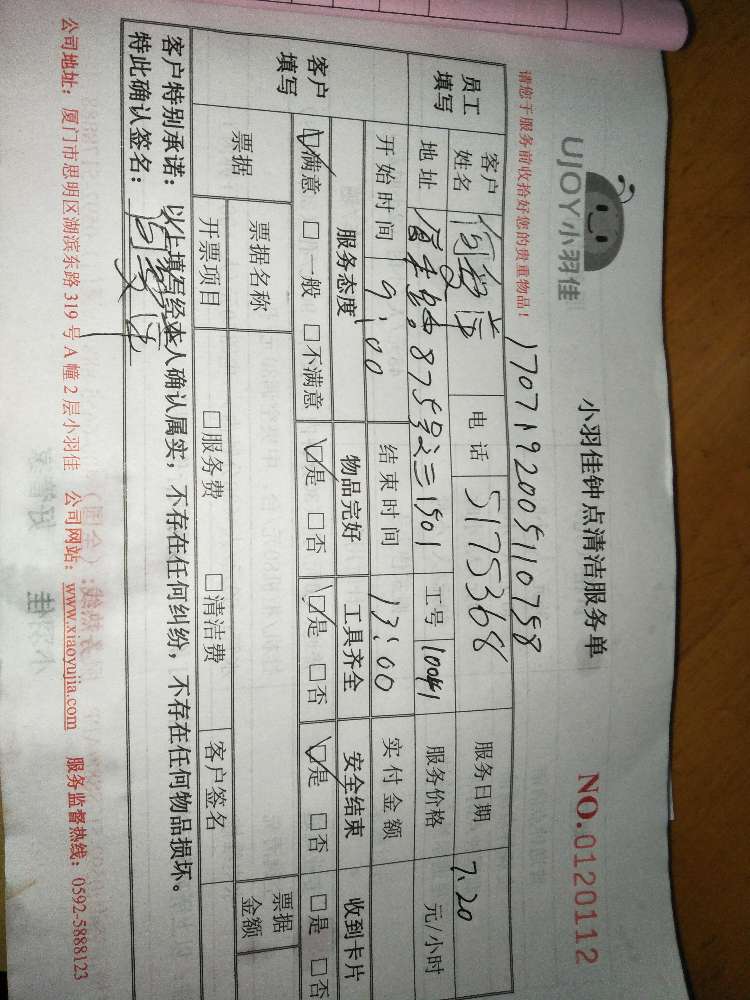 UJOY小羽佳
小羽佳钟点清洁服务单
NO.0120112
请您于服务前收拾好您的贵重物品！
1707192005110758
员工填写
客户姓名 电话 5175368 服务日期 7.20
地址 875号之三1501 工号 10041 服务价格 元/小时
开始时间 9:00 结束时间 13:00 实付金额
客户填写
服务态度 物品完好 工具齐全 安全结束 收到卡片
☑满意 □一般 □不满意 ☑是 □否 ☑是 □否 ☑是 □否 □是 □否
票据 票据名称 票据金额
开票项目 □服务费 □清洁费 客户签名
客户特别承诺：以上填写经本人确认属实，不存在任何纠纷，不存在任何物品损坏。
特此确认签名：
公司地址：厦门市思明区湖滨东路319号A幢2层小羽佳 公司网站：www.xiaoyujia.com 服务监督热线：0592-5888123